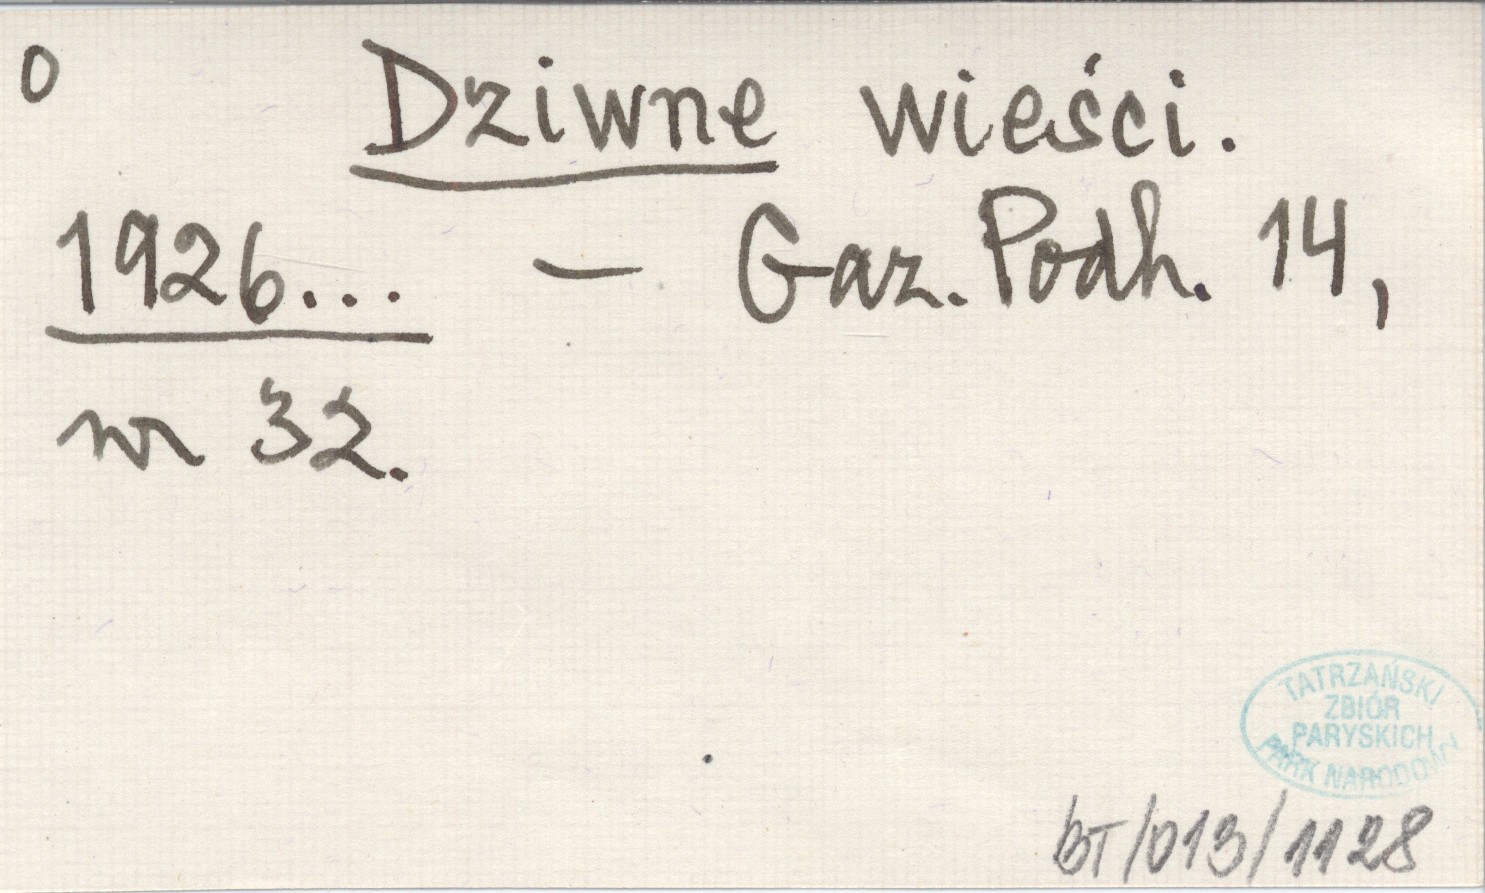 0 Dziwne wieści.
1926... — Gaz. Podh. 14,
nr 32.
TATRZAŃSKI
ZBIÓR
PARYSKICH
PARK NARODOWY
BT/013/1128